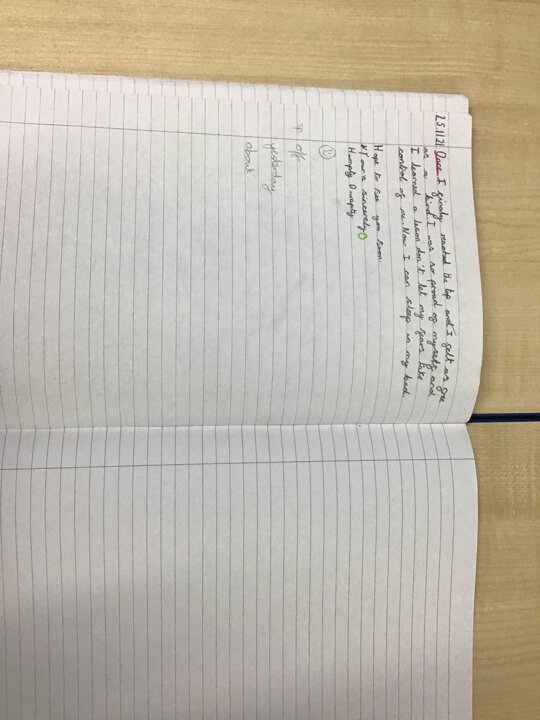 25.11.21 Once I finaly reached the top and I felt as free
as a bird. I was so proud of myself and
I learned a leson don't let my fears take
control of me. Now I can sleep in my bed.
Hope to see you soon.
yours sincerely
Humpty Dumpty
sp off
yesterday
about